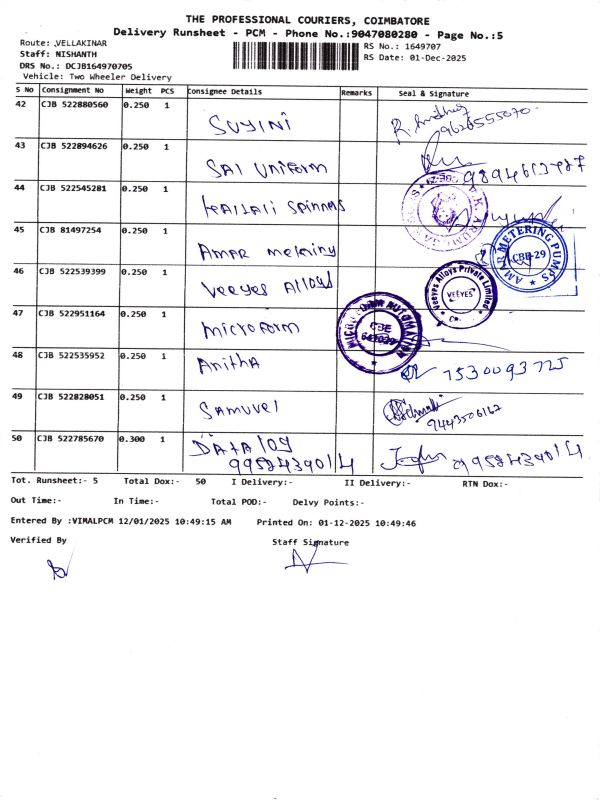 THE PROFESSIONAL COURIERS, COIMBATORE
Delivery Runsheet - PCM - Phone No.:9047080280 - Page No.:5
Route: VELLAKINAR
RS No.: 1649707
Staff: NISHANTH
RS Date: 01-Dec-2025
DRS No.: DCJB164970705
Vehicle: Two Wheeler Delivery
S No Consignment No Weight PCS Consignee Details Remarks Seal & Signature
42 CJB 522880560 0.250 1
SUYINI
9626555070
43 CJB 522894626 0.250 1
SAI UNIFORM
9894613787
44 CJB 522545281 0.250 1
45 CJB 81497254 0.250 1
AMAR
AMAR METERING PUMPS
CBE-29
46 CJB 522539399 0.250 1
Veeyes Alloys
Veeyes Alloys Private Limited
VEEYES
47 CJB 522951164 0.250 1
MICROFORM
MICROFORM AUTOMATION
CBE
641029
48 CJB 522535952 0.250 1
Anitha
7530093725
49 CJB 522828051 0.250 1
SAMUVEl
9443506162
50 CJB 522785670 0.300 1
DATALOG
9958439014
9958439014
Tot. Runsheet:- 5 Total Dox:- 50 I Delivery:- II Delivery:- RTN Dox:-
Out Time:- In Time:- Total POD:- Delvy Points:-
Entered By :VIMALPCM 12/01/2025 10:49:15 AM Printed On: 01-12-2025 10:49:46
Verified By Staff Signature